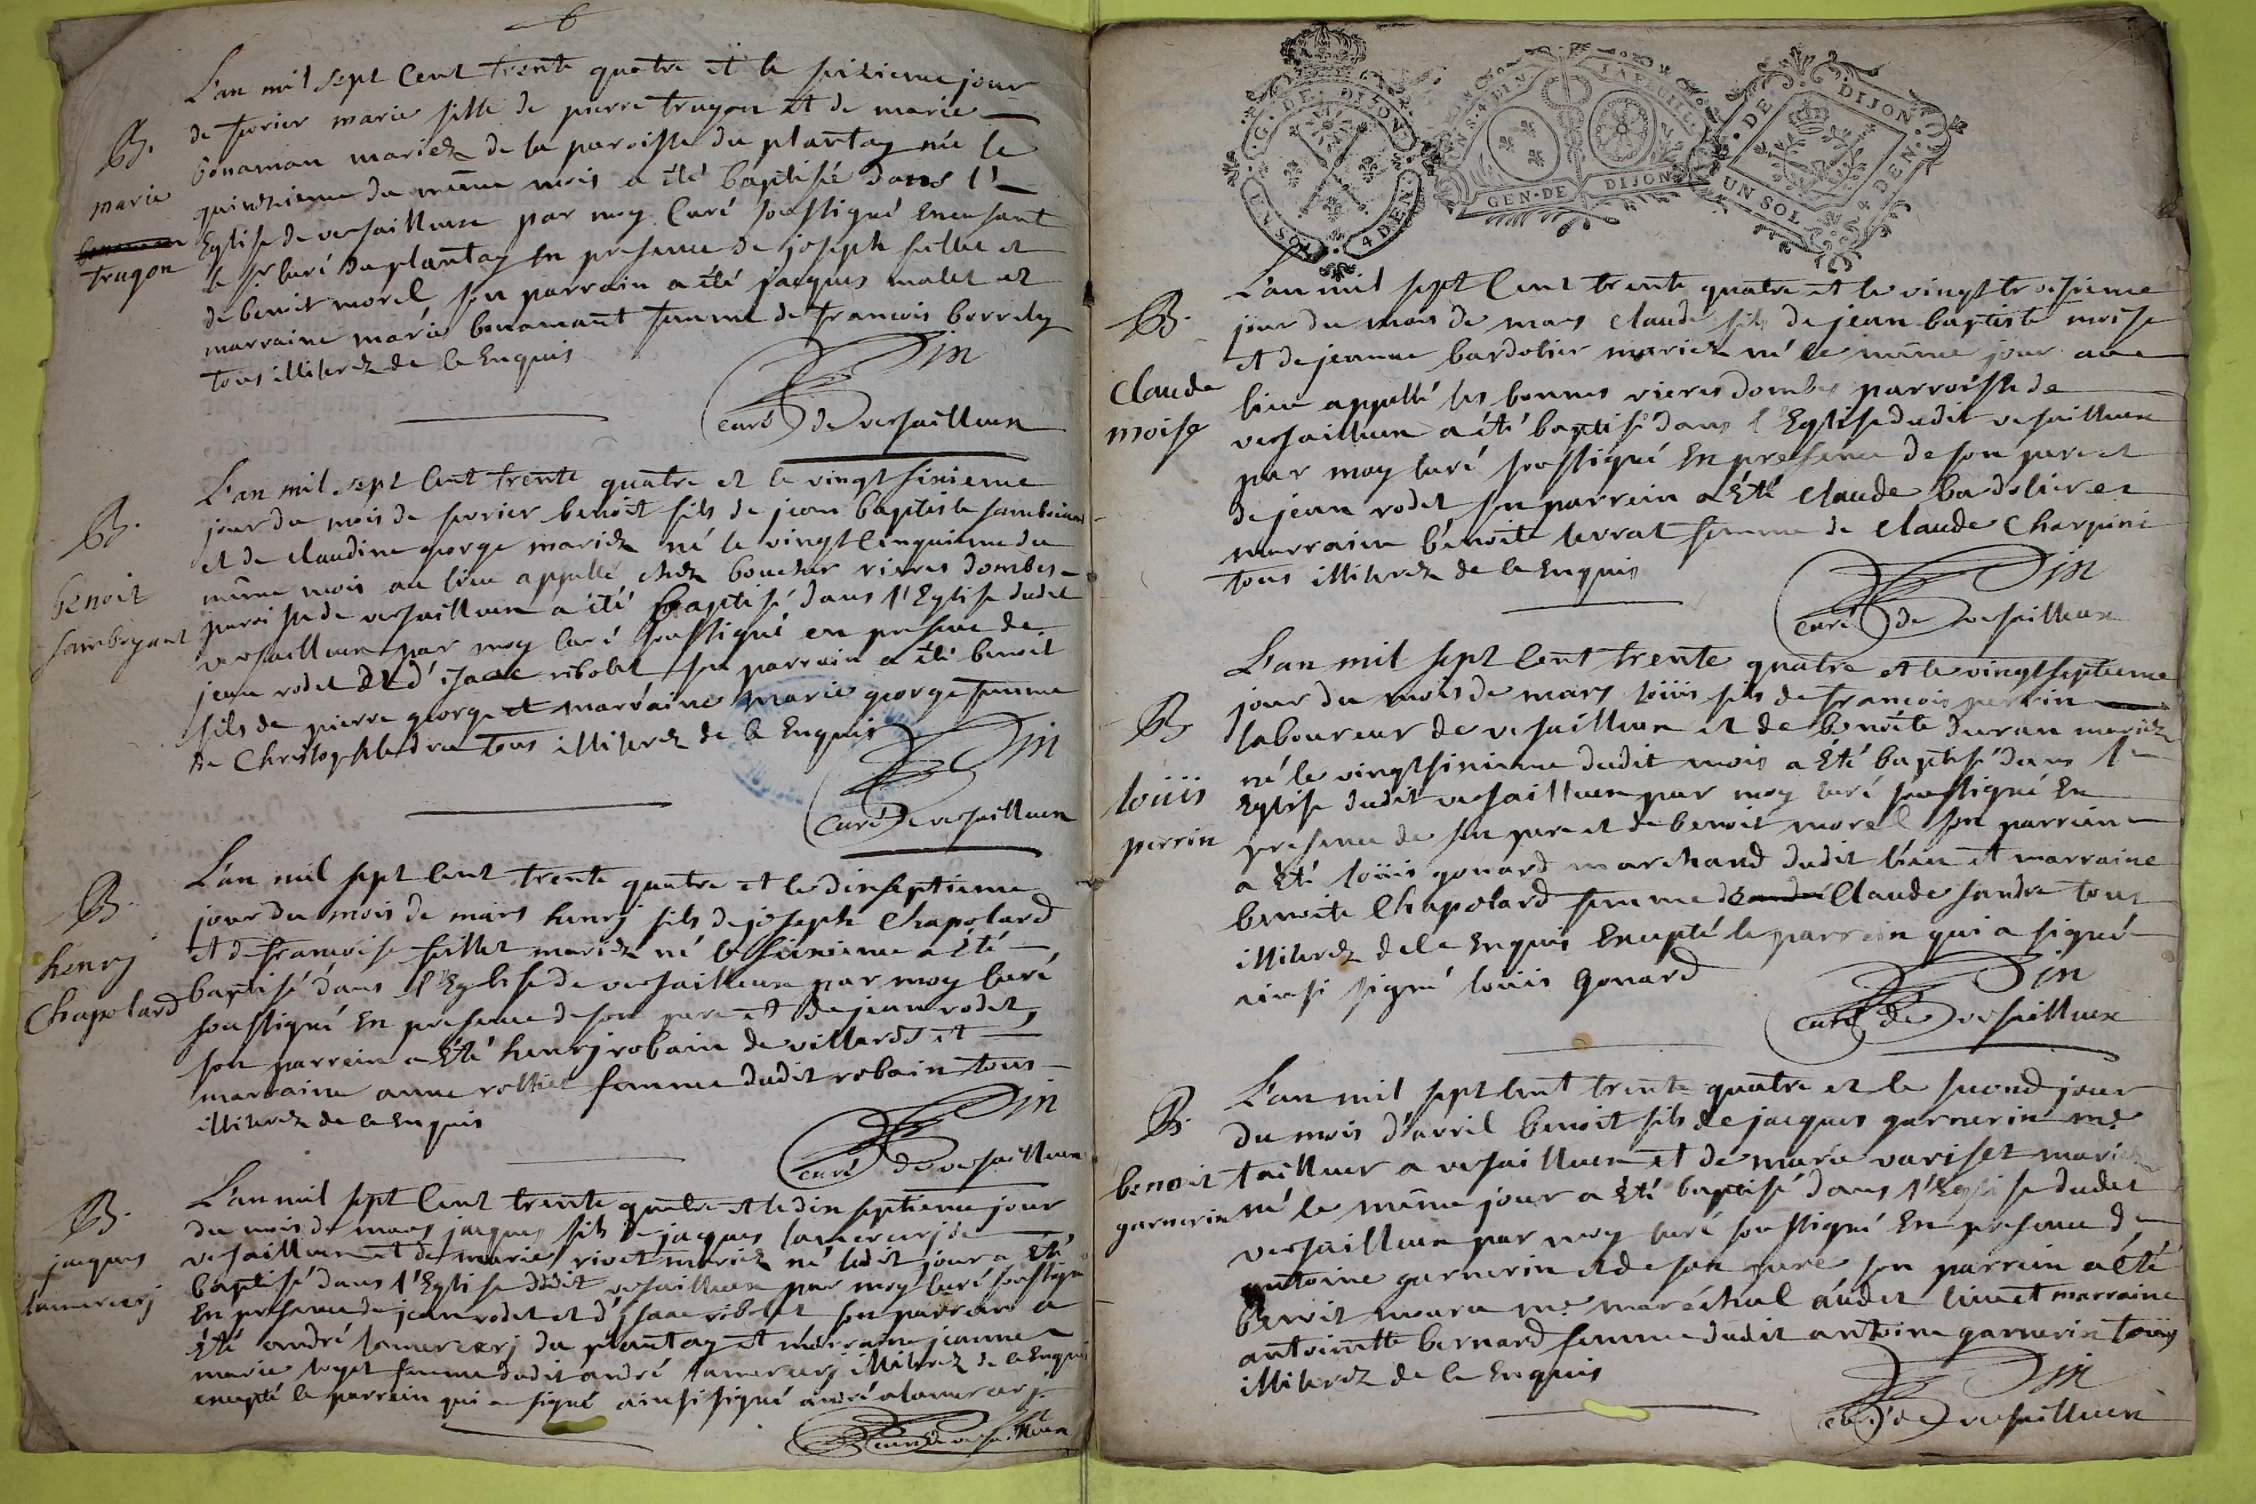 6
L'an mil sept Cent trente quatre et le seizieme jour
de fevrier marie fille de pierre trugon et de marie
bonaman mariez de la paroisse du plantay née le
quinzieme du même mois a été baptisée dans l'
Eglise de versailleux par moy Curé soussigné en
le sr Curé du plantay En presence de joseph fillet et
de benoit morel son parrain a été jacques malet et
marraine marie bonamant femme de francois borrely
tous illiterez de ce Enquis
B.
marie
trugon
Sin
curé de versailleux
L'an mil sept Cent trente quatre et le vingt sixieme
jour du mois de fevrier benoit fils de jean baptiste
et de claudine george mariez né le vingt cinquieme du
même mois au lieu appellé chez boucher rieres dombes
paroisse de versailleux a été baptisé dans l'Eglise dudit
versailleux par moy Curé soussigné en presence de
jean rodet et d'isaac ribolet son parrain a été benoit
fils de pierre george et marraine marie george femme
de Christophle dru tous illiterez de ce Enquis
B.
benoit
sambryant
Sin
Curé de versailleux
L'an mil sept Cent trente quatre et le dixseptieme
jour du mois de mars henry fils de joseph Chapolard
et de francoise fillet mariez né le sixieme a Eté
baptisé dans l'Eglise de versailleux par moy Curé
soussigné En presence de son pere et de jean rodet
son parrein a Eté henry robain de villards et
marraine anne rollier femme dudit robain tous
illiterez de ce Enquis
B.
henrj
Chapolard
Sin
curé de versailleux
L'an mil sept Cent trente quatre et le dixseptieme jour
du mois de mars jacques fils de jacques lamercerj de
versailleux et de marie rivet mariez né ledit jour a Eté
baptisé dans l'Eglise dudit versailleux par moy Curé soussigné
En presence de jean rodet et d'jsaac ribolet son parrain a
Eté andré lamercerj du plantay et marraine jeanne
marie femme dudit andré lamercerj illiterez de ce Enquis
excepté le parrein qui a signé ainsi signé andré alamercerj
B.
jacques
lamercerj
Sin
curé de versailleux
G. DE DIJON
UN SOL 4 DEN.
GEN. DE DIJON
. DE DIJON .
UN SOL 4 DEN.
L'an mil sept Cent trente quatre et le vingt troisieme
jour du mois de mars claude fils de jean baptiste moise
et de jeanne bardolier mariez né le même jour au
lieu appellé les bonnes rieres dombes parroisse de
versailleux a été baptisé dans l'Eglise dudit versailleux
par moy Curé soussigné En presence de son pere et
de jean rodet son parrein a Eté claude badolier et
marraine benoite levrat femme de claude Charpine
tous illiterez de ce Enquis
B.
Claude
moise
Sin
curé de versailleux
L'an mil sept Cent trente quatre et le vingt septieme
jour du mois de mars loüis fils de francois perrin
laboureur de versailleux et de benoite duran mariez
né le vingtsixieme dudit mois a Eté baptisé dans l'
Eglise dudit versailleux par moy Curé soussigné En
presence de son pere et de benoit morel son parrein
a Eté loüis gonard marchand dudit lieu et marraine
benoite Chapolard femme de Claude sandre tous
illiterez de ce Enquis Excepté le parrein qui a signé
ainsi signé loüis Gonard
B.
loüis
perrin
Sin
curé de versailleux
L'an mil sept Cent trente quatre et le second jour
du mois d'avril benoit fils de jacques garnerin me
tailleur a versailleux et de marie variset mariez
né le même jour a Eté baptisé dans l'Eglise dudit
versailleux par moy Curé soussigné En presence d
antoine garnerin et de son pere son parrein a été
benoit me maréchal audit lieu et marraine
antoinette bernard femme dudit antoine garnerin tous
illiterez de ce Enquis
B.
benoit
garnerin
Sin
curé de versailleux